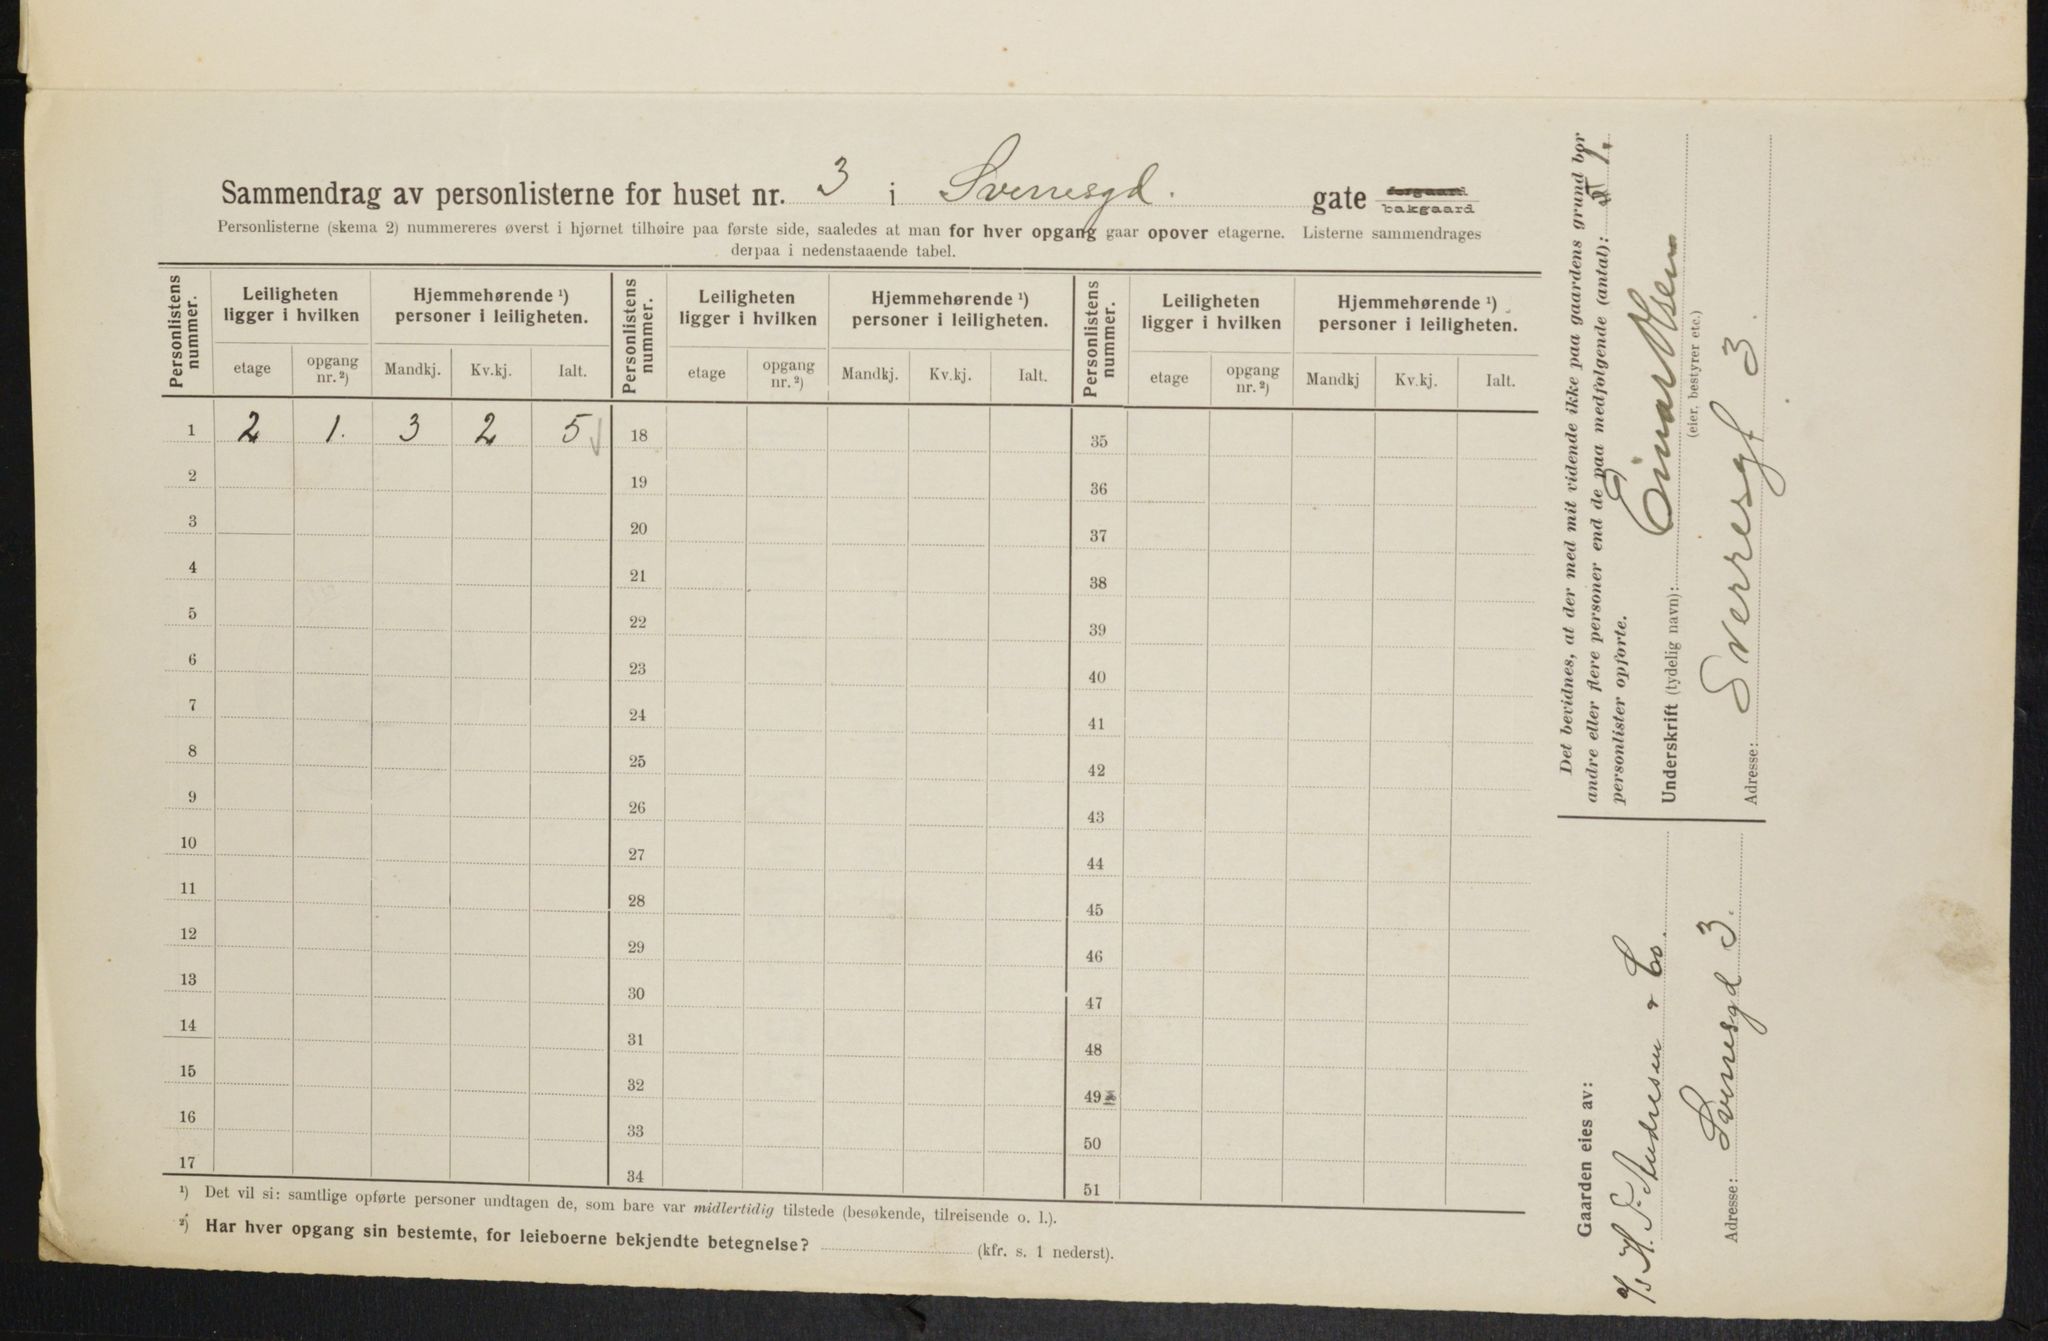 Sammendrag av personlisterne for huset nr. 3 i Sverresgd. gate forgaard bakgaard
Personlisterne (skema 2) nummereres øverst i hjørnet tilhøire paa første side, saaledes at man for hver opgang gaar opover etagerne. Listerne sammendrages
derpaa i nedenstaaende tabel.
Personlistens nummer. Leiligheten ligger i hvilken Hjemmehørende ¹) personer i leiligheten. Personlistens nummer. Leiligheten ligger i hvilken Hjemmehørende ¹) personer i leiligheten. Personlistens nummer. Leiligheten ligger i hvilken Hjemmehørende ¹) personer i leiligheten.
etage opgang nr. ²) Mandkj. Kv.kj. Ialt. etage opgang nr. ²) Mandkj. Kv.kj. Ialt. etage opgang nr. ²) Mandkj Kv.kj. Ialt.
1 2 1. 3 2 5 18 35
2 19 36
3 20 37
4 21 38
5 22 39
6 23 40
7 24 41
8 25 42
9 26 43
10 27 44
11 28 45
12 29 46
13 30 47
14 31 48
15 32 49
16 33 50
17 34 51
¹) Det vil si: samtlige opførte personer undtagen de, som bare var midlertidig tilstede (besøkende, tilreisende o. l.).
²) Har hver opgang sin bestemte, for leieboerne bekjendte betegnelse? (kfr. s. 1 nederst).
Det bevidnes, at der med mit vidende ikke paa gaardens grund bor
andre eller flere personer end de paa medfølgende (antal): 1.
personlister opførte.
Underskrift (tydelig navn): Einar Olsen
(eier, bestyrer etc.)
Adresse: Sverresgt 3.
Gaarden eies av:
a/s H. F. Andresen & Co.
Adresse: Sverresgd 3.